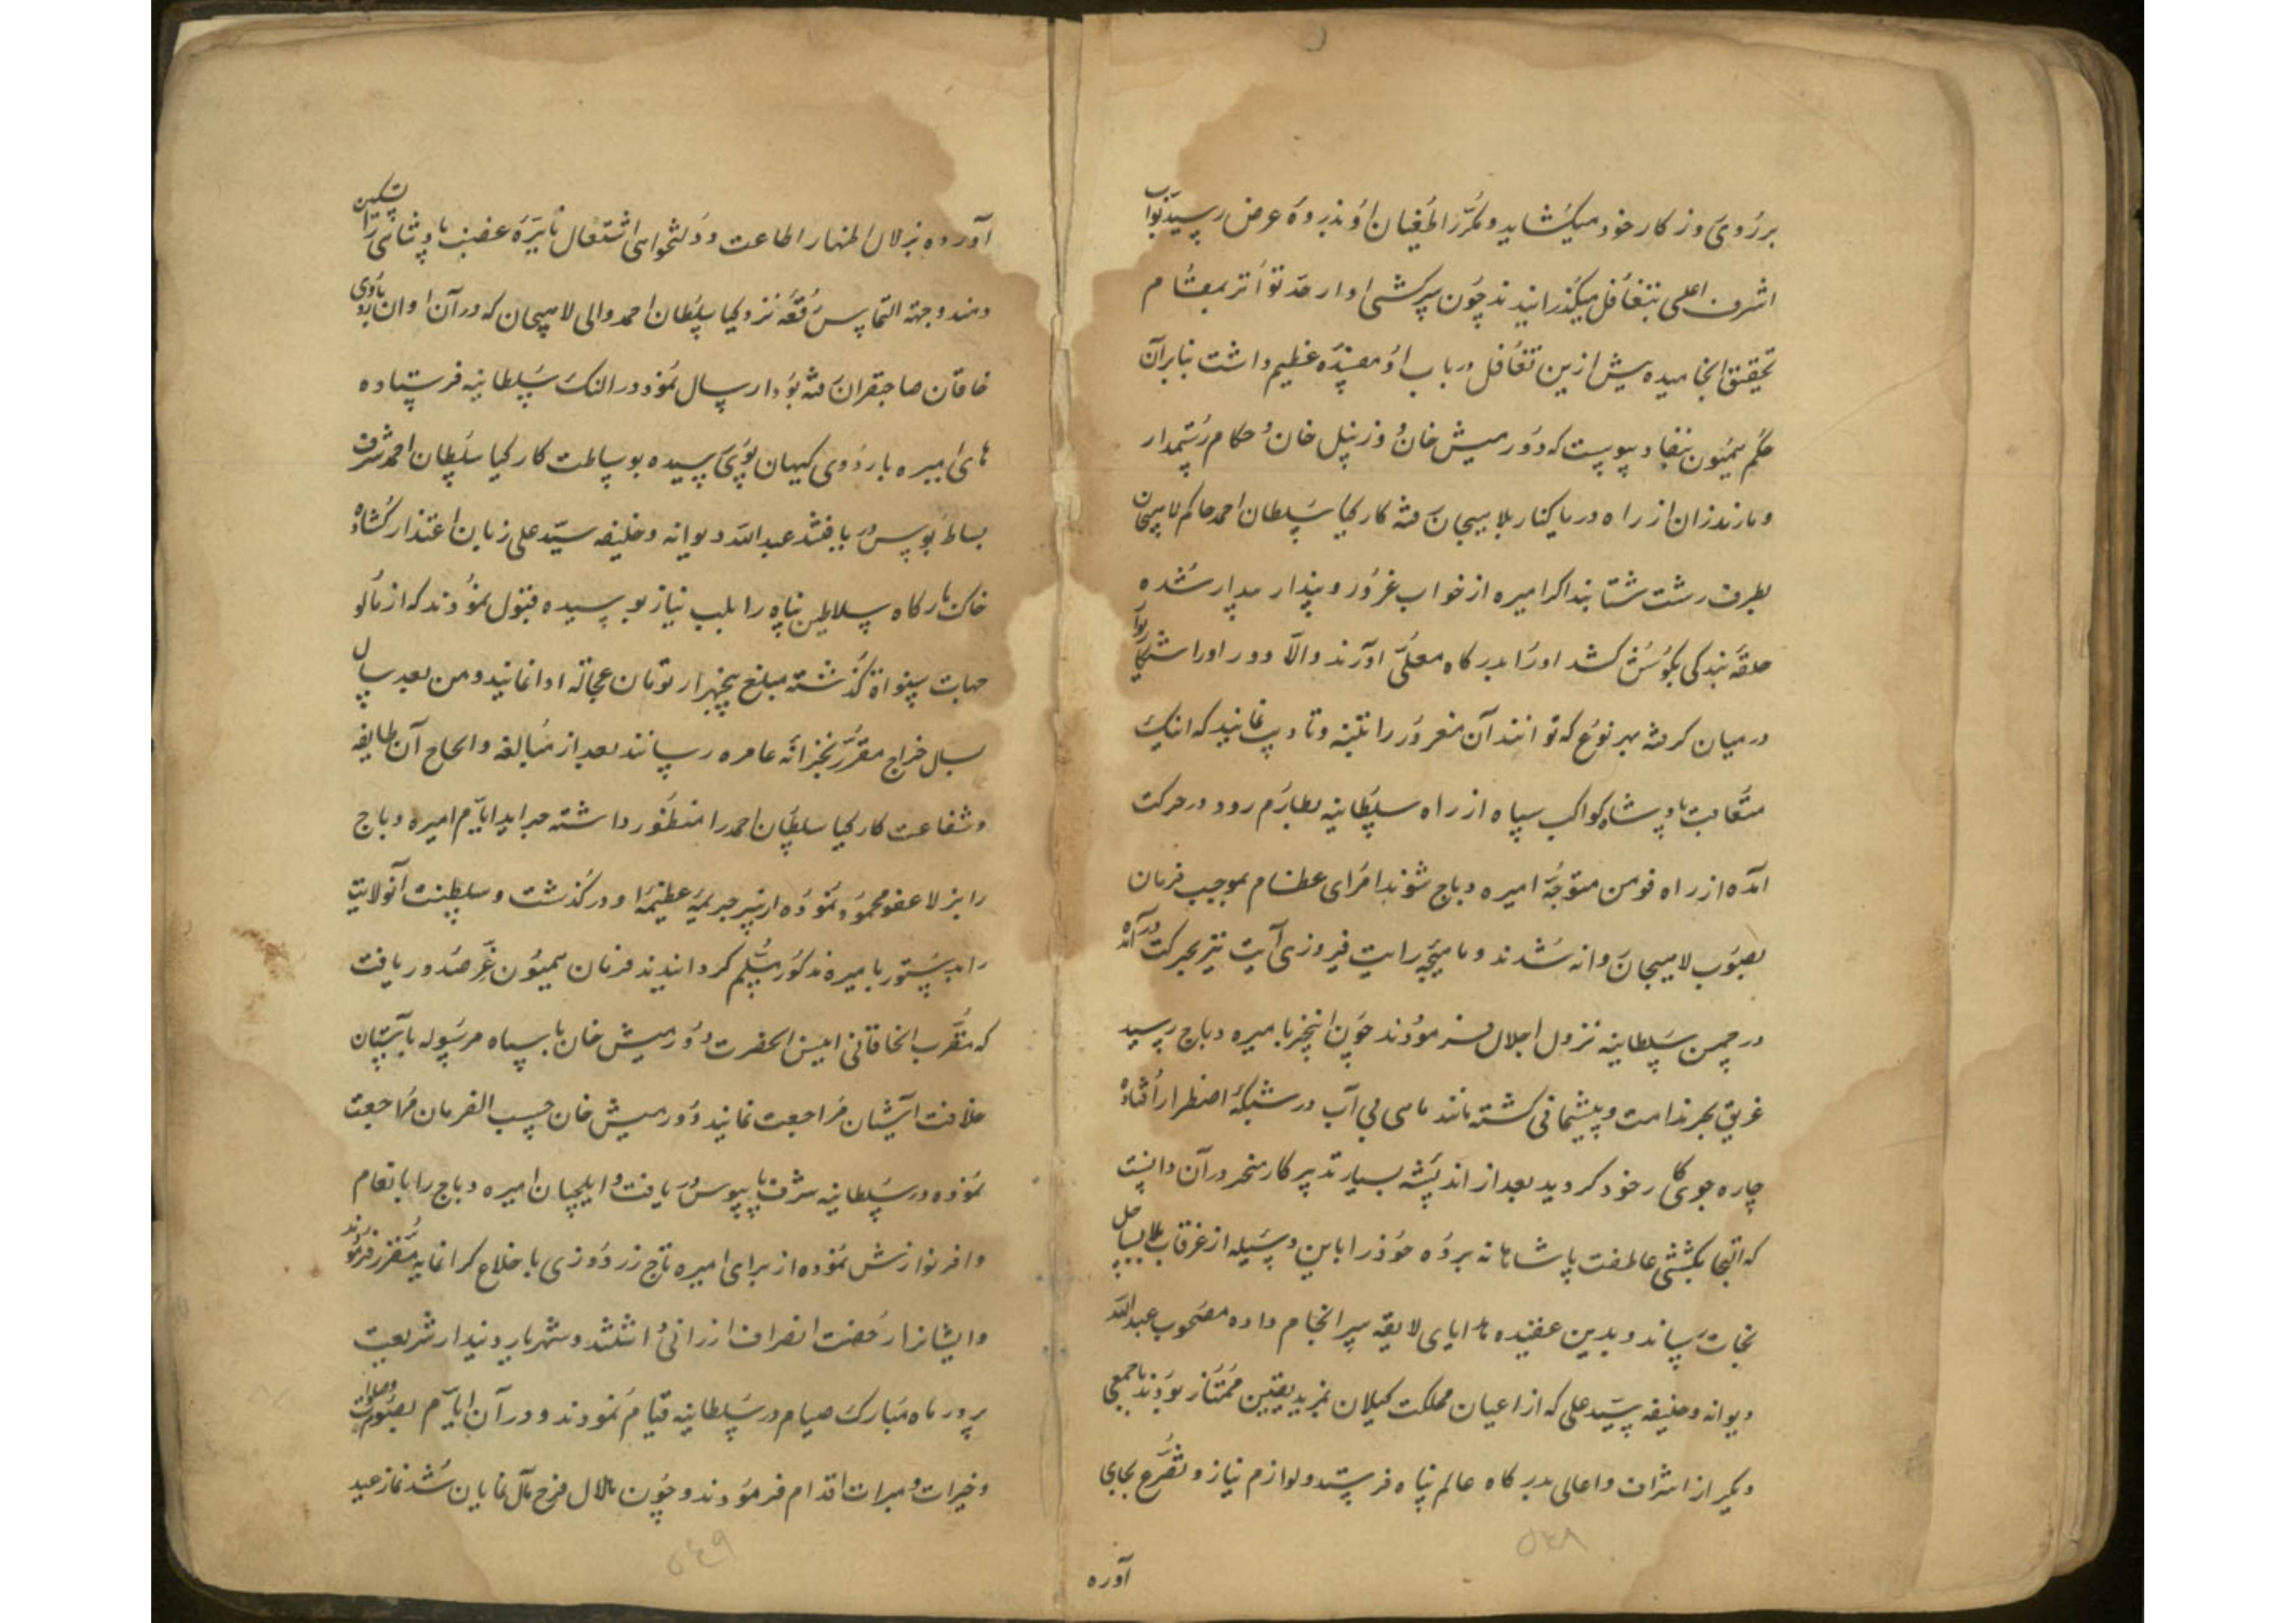 بر روی وز کار خود میکشاید و مکرر طغیان او بذروه عرض رسید نواب
اشرف اعلی بتغافل میگذرانیدند چون سرکشی او از حد تواتر بمقام
تحقیق انجامیده بیش ازین تغافل در باب او مفسده عظیم داشت بنابرآن
حکم همیون بنفاذ پیوست که دورمیش خان و زینل خان و حکام رستمدار
و مازندران از راه دریا کنار بلاهیجان رفته کارکیا سلطان احمد حاکم لاهیجان
بطرف رشت شتابند اگر امیره از خواب غرور و پندار بیدار شده
حلقه بندکی بکوش کشد او را بدرکاه معلی آورند والا دور او را
درمیان کرفته بهر نوع که توانند آن مغرور را تنبیه و تادیب نمایند که اینک
متعاقب پادشاه کواکب سپاه از راه سلطانیه بطارم رود در حرکت
آمده از راه فومن متوجه امیره دباج شوند امرای عظام بموجب فرمان
بصوب لاهیجان روانه شدند و ماهیچه رایت فیروزی آیت نیز بحرکت در آمده
در چمن سلطانیه نزول اجلال فرمودند چون اینخبر بامیره دباج رسید
غریق بحر ندامت و پشیمانی کشته مانند ماهی بی آب در شبکه اضطرار افتاده
چاره جوی کار خود کردید بعد از اندیشه بسیار تدبیر کار منحصر در آن دانست
که التجا بکشتی عاطفت پادشاهانه برده خود را باین وسیله از غرقاب بلا بساحل
نجات رساند و بدین عقیده هدایای لایقه سرانجام داده مصحوب عبدالله
دیوانه و خلیفه سید علی که از اعیان مملکت کیلان بمزید یقین ممتاز بودند با جمعی
دیکر از اشراف و اعالی بدرکاه عالم پناه فرستد و لوازم نیاز و تضرع بجای
آورده
آورده بزلال اظهار اطاعت و دولتخواهی اشتعال نایره غضب پادشاهی را تسکین
دهند و جهة التماس رقعه نزد کیا سلطان احمد والی لاهیجان که در آن اوان باردوی
خاقان صاحبقران رفته بود ارسال نمود در النک سلطانیه فرستاده
های امیره باردوی کیهان پوی رسیده بوساطت کارکیا سلطان احمد شرف
بساط بوسی دریافتند عبدالله دیوانه و خلیفه سید علی زبان اعتذار کشاده
خاک بارکاه سلاطین پناه را بلب نیاز بوسیده قبول نمودند که از مال و
جهات سنواة کذشته مبلغ پنجهزار تومان عجالة ادا نمایند و من بعد سال
بسال خراج مقرر بخزانه عامره رسانند بعد از مبالغه و الحاح آن طایفه
و شفاعت کارکیا سلطان احمد را منظور داشته جراید ایام امیره دباج
را بزلال عفو محو نموده از سر جریمه عظیمه او درکذشت و سلطنت آنولایت
را بدستور بامیره مذکور مسلم کردانیدند فرمان همیون عز صدور یافت
که مقرب الخاقانی انیس الحضرت دورمیش خان با سپاه مرسوله بآستان
خلافت آشیان مراجعت نمایند دورمیش خان حسب الفرمان مراجعت
نموده در سلطانیه شرف پابوس دریافت و ایلچیان امیره دباج را بانعام
وافر نوازش نموده از برای امیره تاج زردوزی با خلاع کرانمایه مقرر فرمودند
و ایشانرا رخصت انصراف ارزانی داشتند و شهریار دیندار شریعت
پرور ماه مبارک صیام در سلطانیه قیام نمودند و در آن ایام بصوم و صلوات
و خیرات و مبرات اقدام فرمودند و چون هلال فرخ فال نمایان شد نماز عید
۵۴۸
۵۴۹